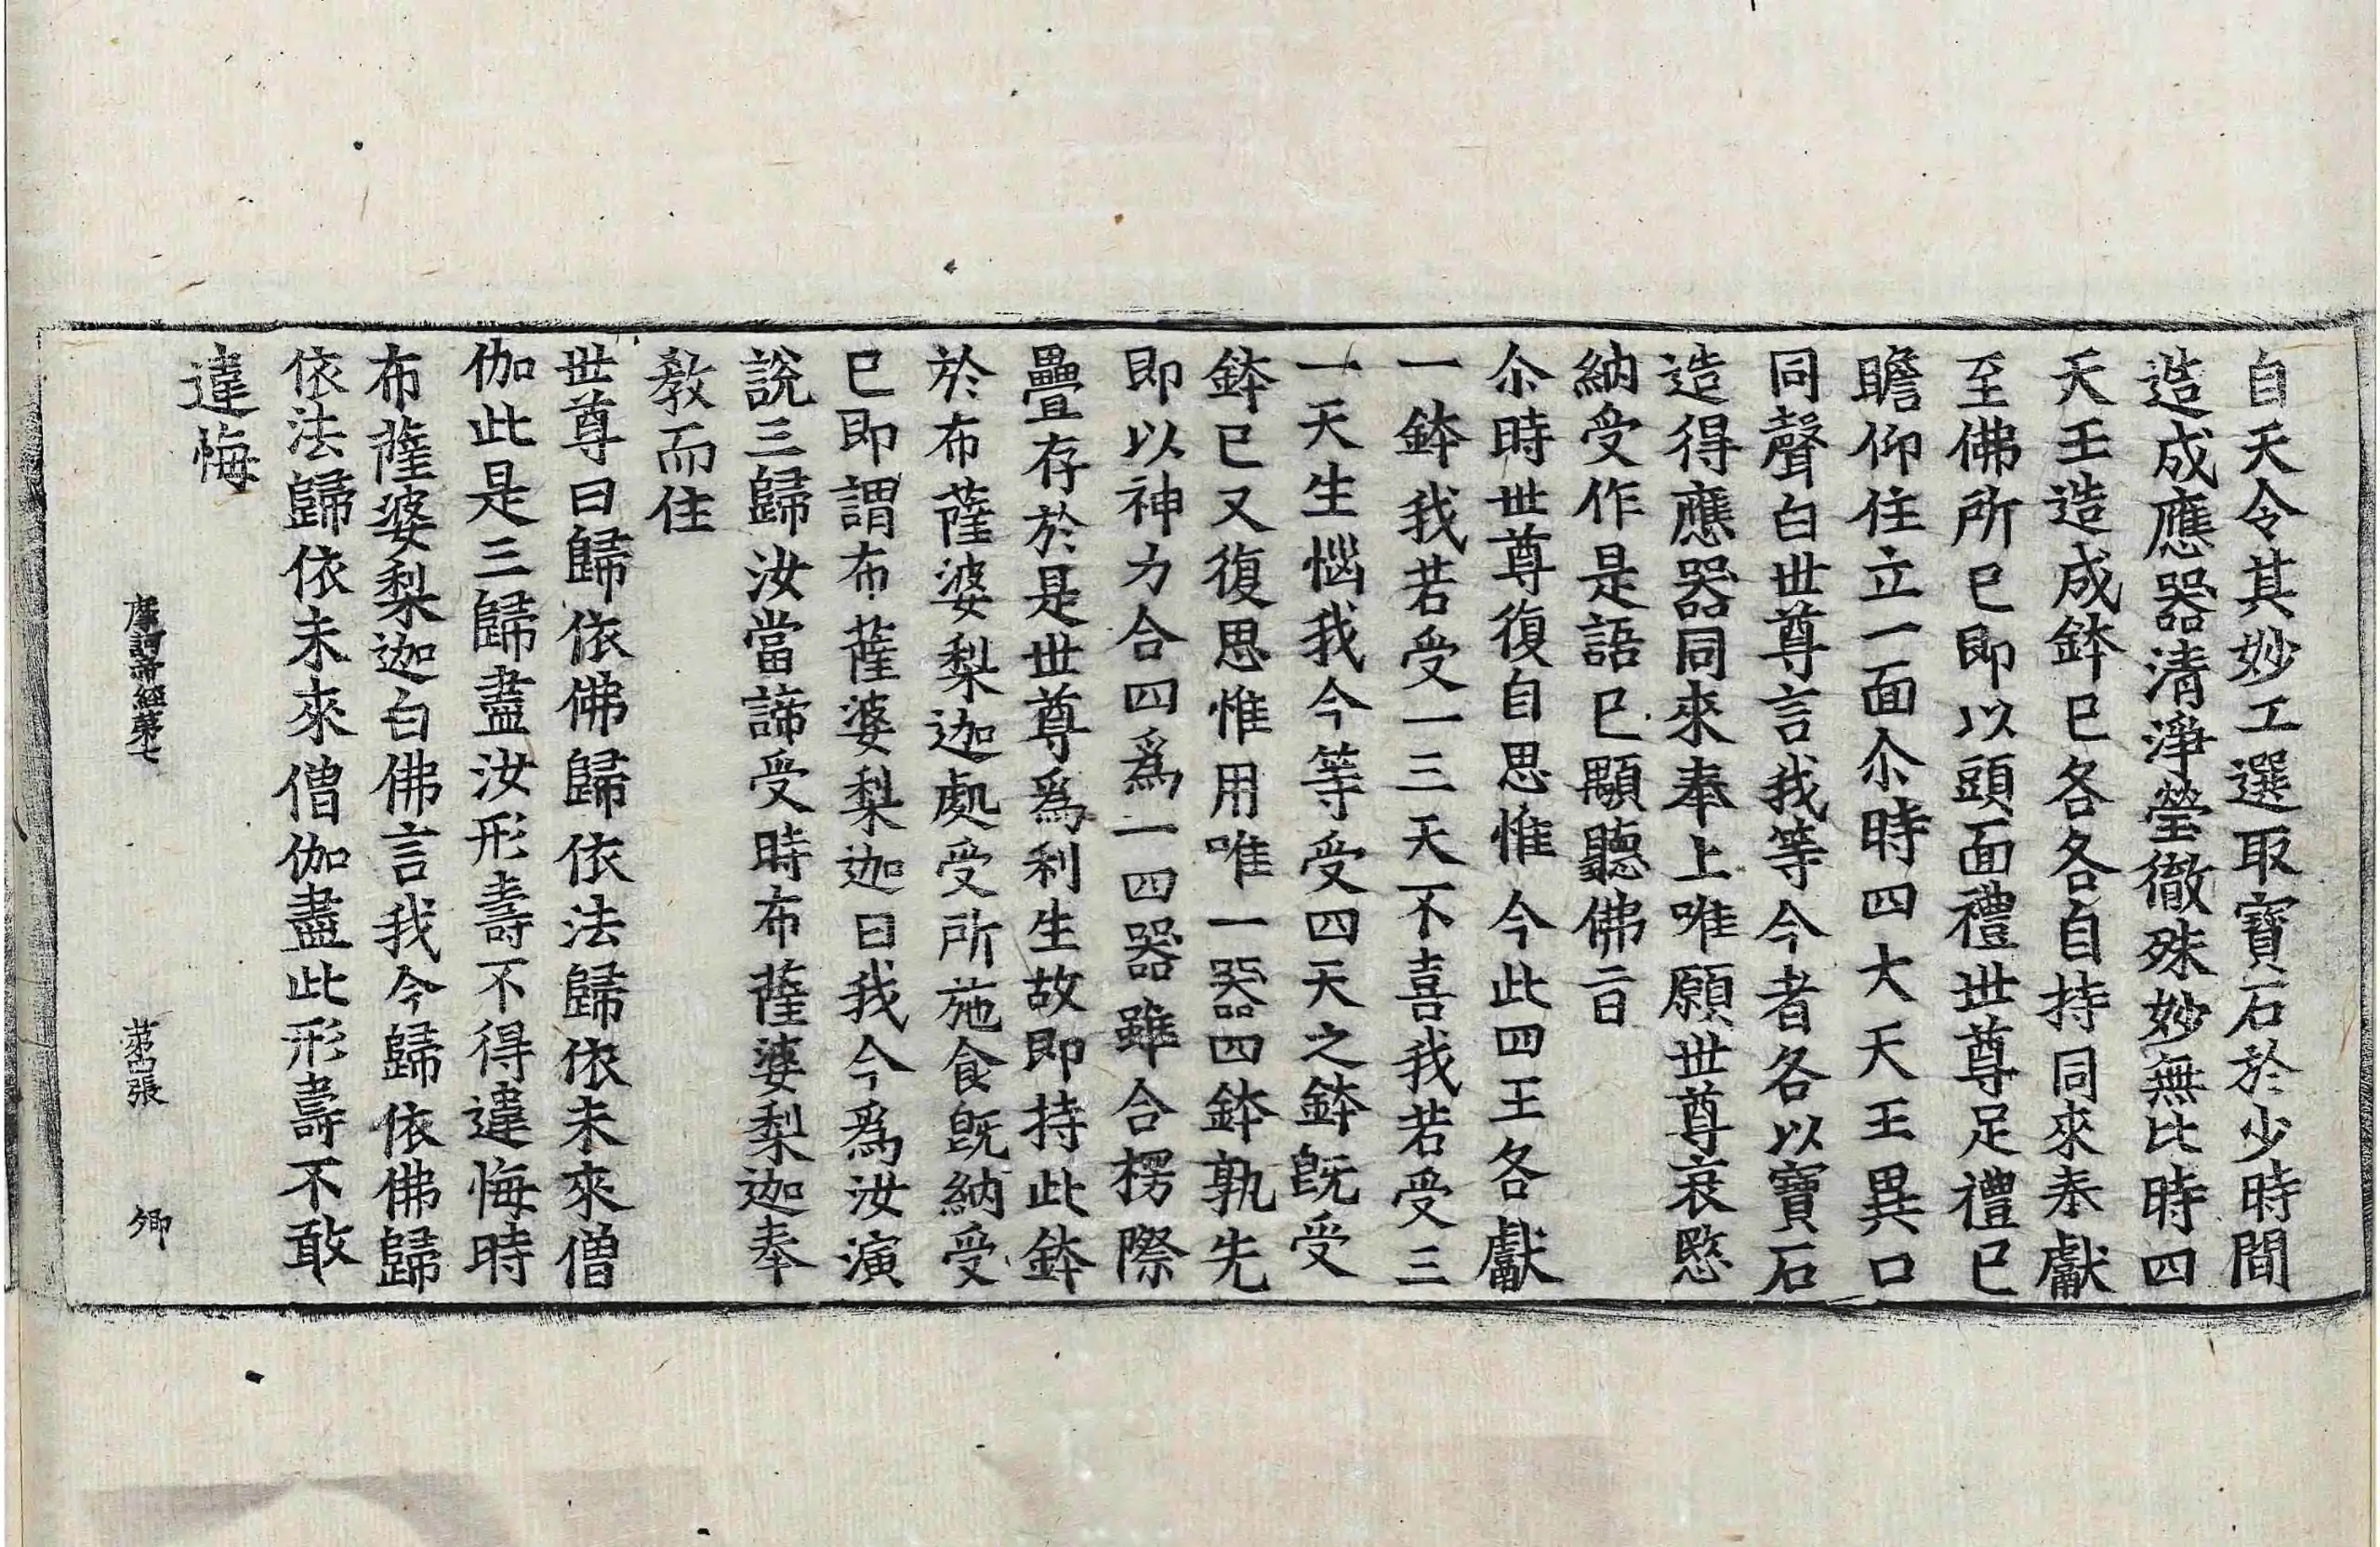 自天令其妙工選取寶石於少時間
造成應器清淨瑩徹殊妙無比時四
天王造成鉢已各各自持同來奉獻
至佛所已即以頭面禮世尊足禮已
瞻仰住立一面尒時四大天王異口
同聲白世尊言我等今者各以寶石
造得應器同來奉上唯願世尊哀愍
納受作是語已顒聽佛音
尒時世尊復自思惟今此四王各獻
一鉢我若受一三天不喜我若受三
一天生惱我今等受四天之鉢旣受
鉢已又復思惟用唯一器四鉢孰先
即以神力合四爲一四器雖合楞際
疊存於是世尊爲利生故即持此鉢
於布薩婆梨迦處受所施食旣納受
已即謂布薩婆梨迦曰我今爲汝演
說三歸汝當諦受時布薩婆梨迦奉
教而住
世尊曰歸依佛歸依法歸依未來僧
伽此是三歸盡汝形壽不得違悔時
布薩婆梨迦白佛言我今歸依佛歸
依法歸依未來僧伽盡此形壽不敢
違悔
摩訶帝經第七 第四張 卿